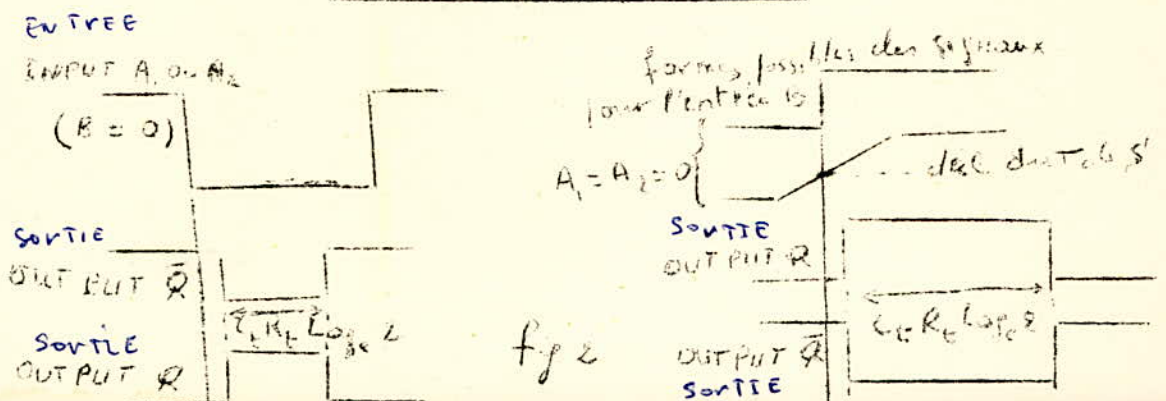 ENTREE
INPUT A, ou A₂
(B = 0)
SORTIE
OUTPUT Q̄
C_t R_t Log_e 2
SORTIE
OUTPUT Q
fig 2
formes possibles des signaux
pour l'entrée B
A₁ = A₂ = 0
SORTIE
OUTPUT Q
C_t R_t Log_e 2
OUTPUT Q̄
SORTIE